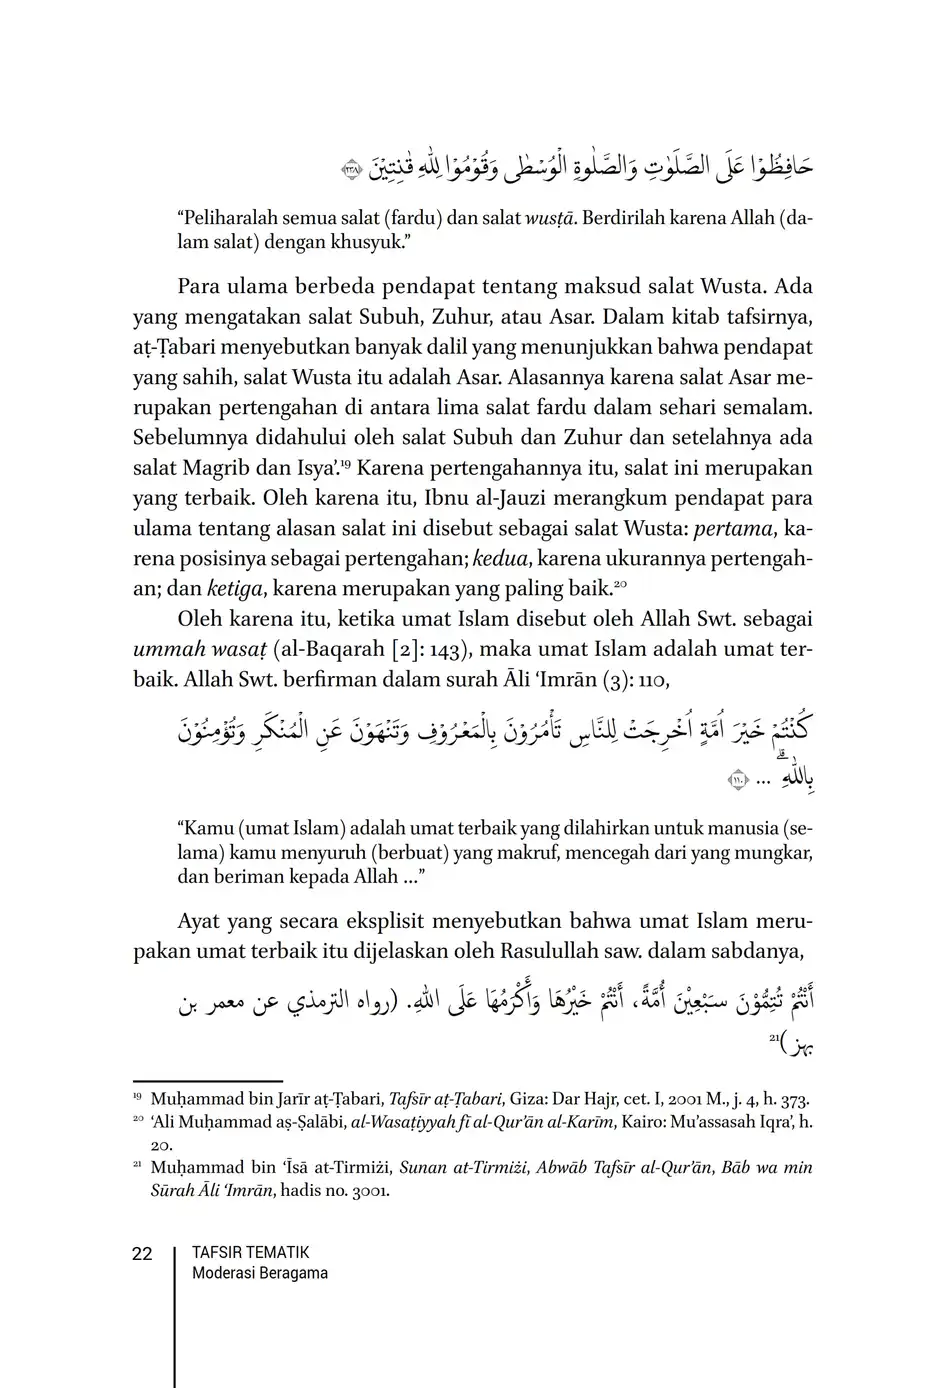 حَافِظُوْا عَلَى الصَّلَوٰتِ وَالصَّلٰوةِ الْوُسْطٰى وَقُوْمُوْا لِلّٰهِ قٰنِتِيْنَ ۝٢٣٨
“Peliharalah semua salat (fardu) dan salat wusṭā. Berdirilah karena Allah (da-
lam salat) dengan khusyuk.”
Para ulama berbeda pendapat tentang maksud salat Wusta. Ada
yang mengatakan salat Subuh, Zuhur, atau Asar. Dalam kitab tafsirnya,
aṭ-Ṭabari menyebutkan banyak dalil yang menunjukkan bahwa pendapat
yang sahih, salat Wusta itu adalah Asar. Alasannya karena salat Asar me-
rupakan pertengahan di antara lima salat fardu dalam sehari semalam.
Sebelumnya didahului oleh salat Subuh dan Zuhur dan setelahnya ada
salat Magrib dan Isya’.¹⁹ Karena pertengahannya itu, salat ini merupakan
yang terbaik. Oleh karena itu, Ibnu al-Jauzi merangkum pendapat para
ulama tentang alasan salat ini disebut sebagai salat Wusta: pertama, ka-
rena posisinya sebagai pertengahan; kedua, karena ukurannya pertengah-
an; dan ketiga, karena merupakan yang paling baik.²⁰
Oleh karena itu, ketika umat Islam disebut oleh Allah Swt. sebagai
ummah wasaṭ (al-Baqarah [2]: 143), maka umat Islam adalah umat ter-
baik. Allah Swt. berfirman dalam surah Āli ‘Imrān (3): 110,
كُنْتُمْ خَيْرَ اُمَّةٍ اُخْرِجَتْ لِلنَّاسِ تَأْمُرُوْنَ بِالْمَعْرُوْفِ وَتَنْهَوْنَ عَنِ الْمُنْكَرِ وَتُؤْمِنُوْنَ
بِاللّٰهِ ۗ ... ۝١١٠
“Kamu (umat Islam) adalah umat terbaik yang dilahirkan untuk manusia (se-
lama) kamu menyuruh (berbuat) yang makruf, mencegah dari yang mungkar,
dan beriman kepada Allah ...”
Ayat yang secara eksplisit menyebutkan bahwa umat Islam meru-
pakan umat terbaik itu dijelaskan oleh Rasulullah saw. dalam sabdanya,
أَنْتُمْ تُتِمُّوْنَ سَبْعِيْنَ أُمَّةً، أَنْتُمْ خَيْرُهَا وَأَكْرَمُهَا عَلَى اللهِ. (رواه الترمذي عن معمر بن
بهز)²¹
¹⁹ Muḥammad bin Jarīr aṭ-Ṭabari, Tafsīr aṭ-Ṭabari, Giza: Dar Hajr, cet. I, 2001 M., j. 4, h. 373.
²⁰ ‘Ali Muḥammad aṣ-Ṣalābi, al-Wasaṭiyyah fī al-Qur’ān al-Karīm, Kairo: Mu’assasah Iqra’, h.
20.
²¹ Muḥammad bin ‘Īsā at-Tirmiżi, Sunan at-Tirmiżi, Abwāb Tafsīr al-Qur’ān, Bāb wa min
Sūrah Āli ‘Imrān, hadis no. 3001.
22 TAFSIR TEMATIK
Moderasi Beragama